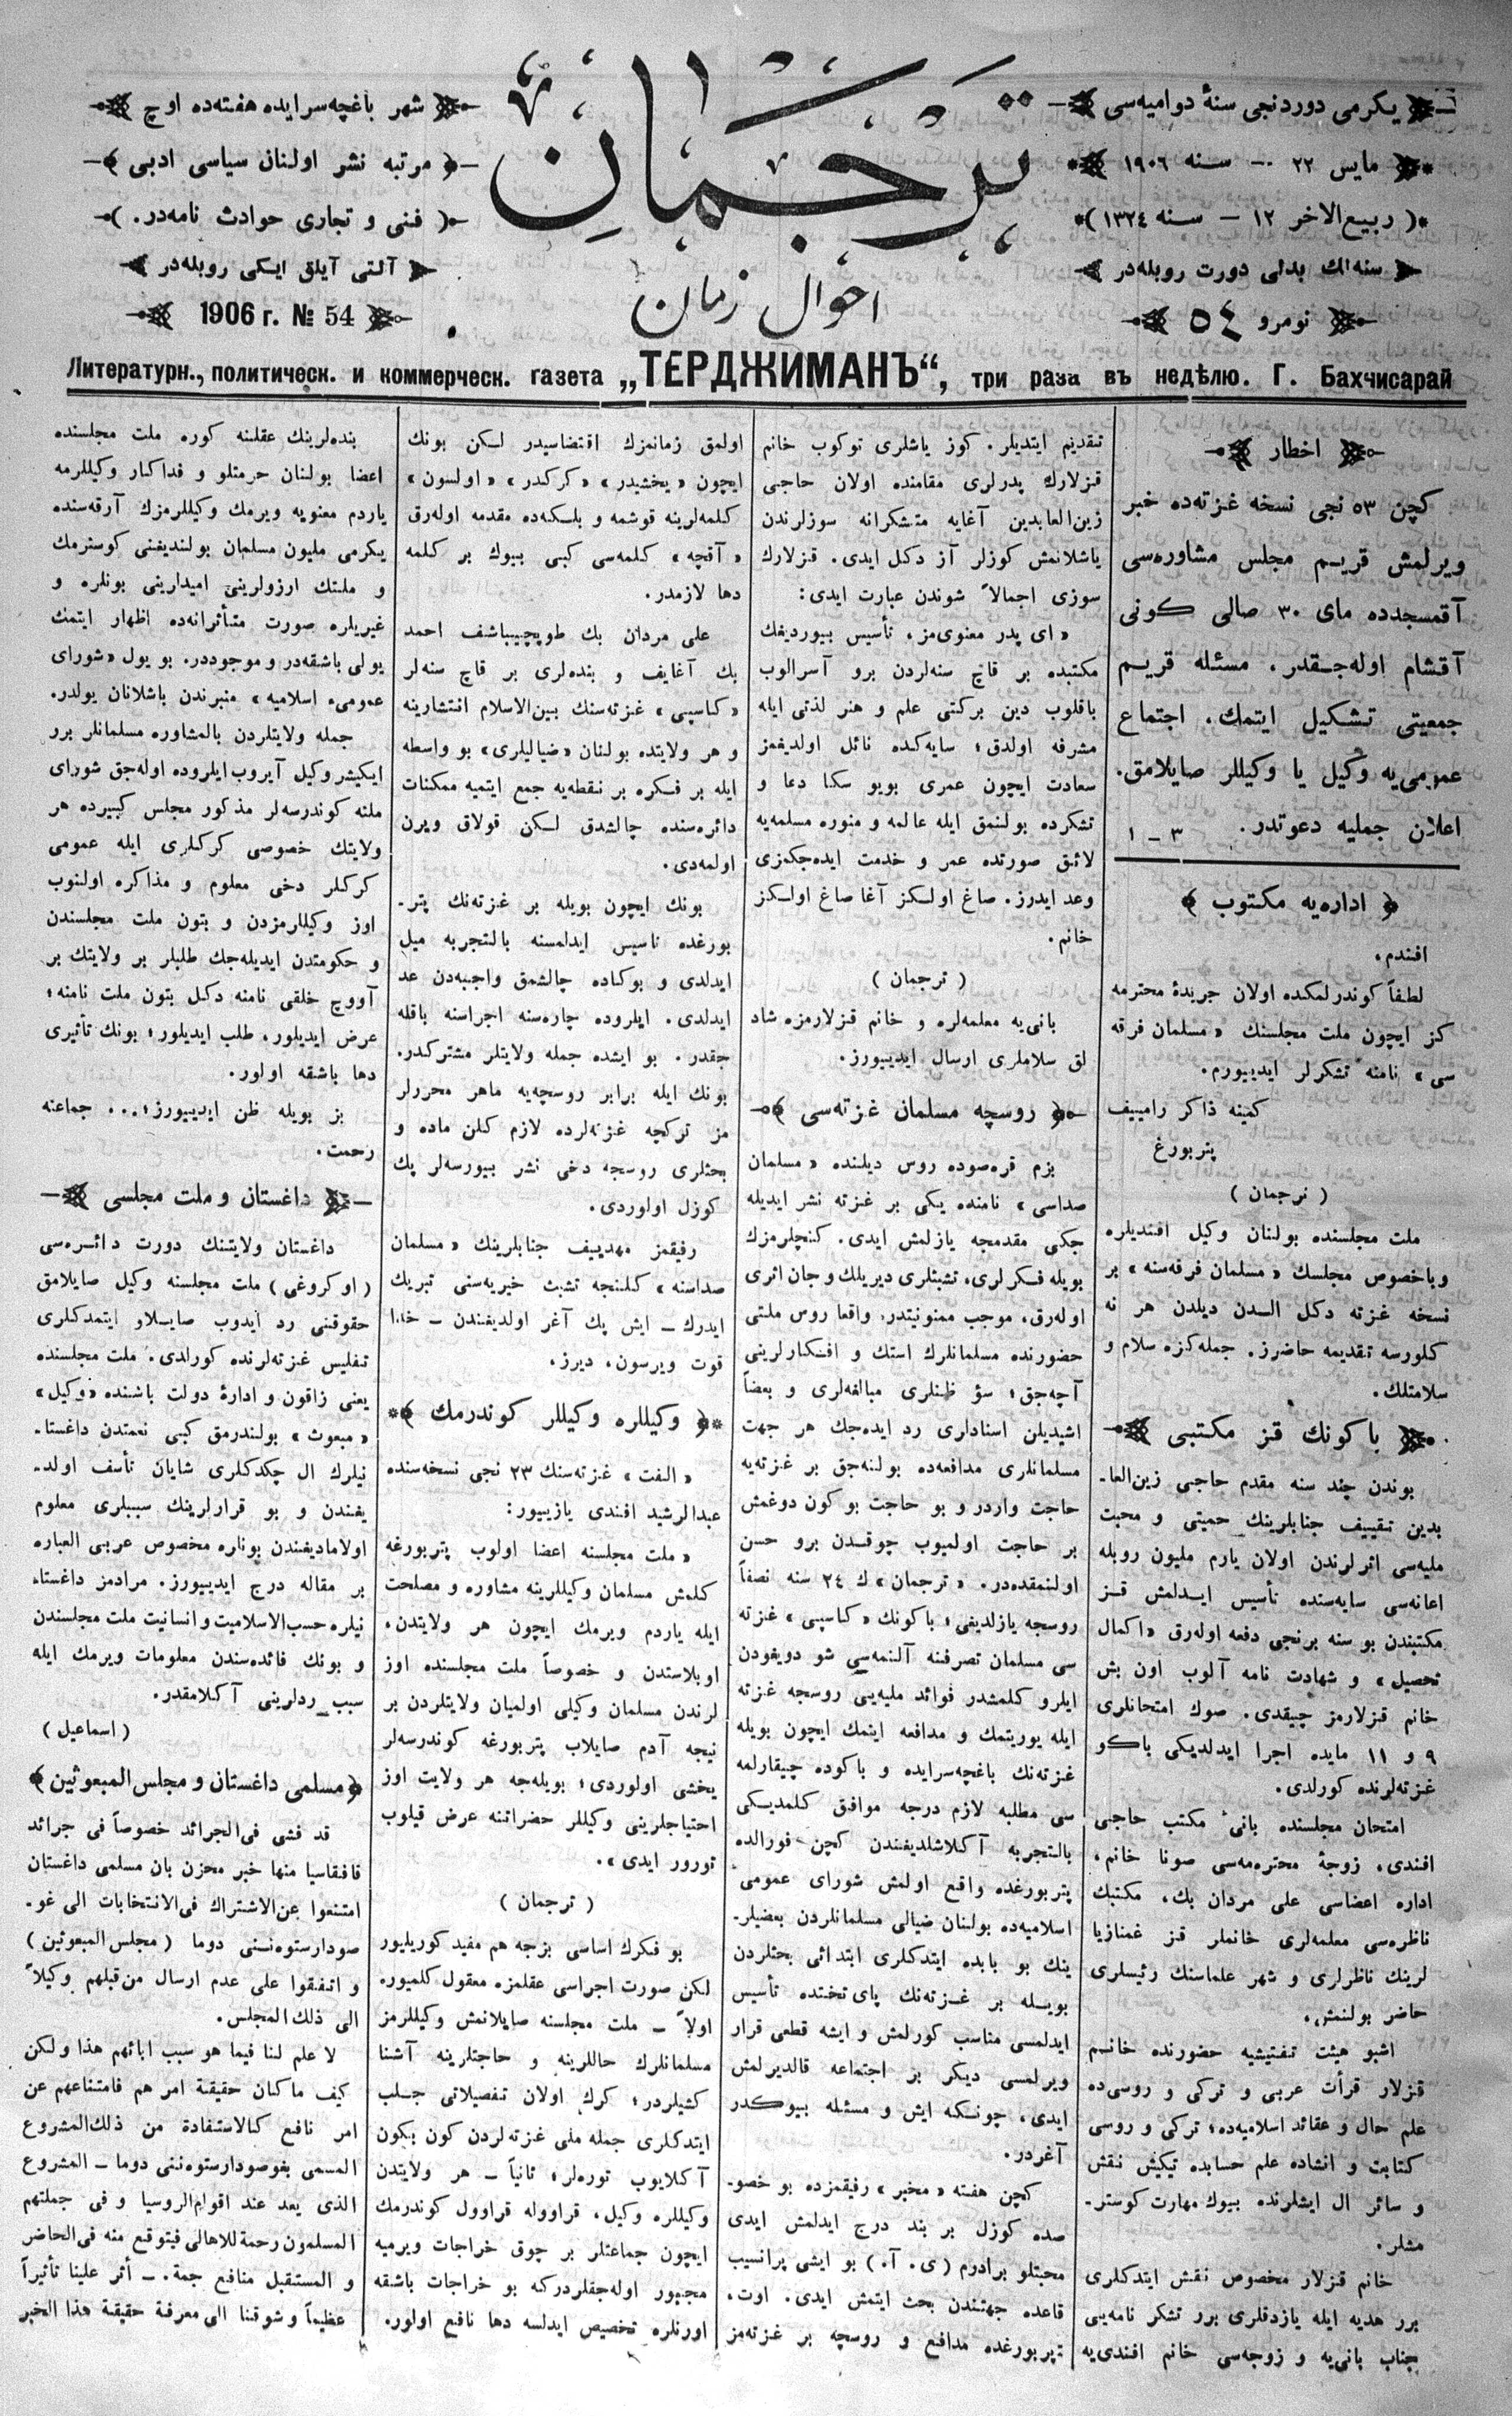 يكرمى دوردنجى سنۀ دواميه‌سى
مايس ٢٢ — سنه ١٩٠٦
( ربيع‌الاخر ١٢ — سنه ١٣٢٤ )
سنه‌لك بدلى دورت روبله‌در
نومرو ٥٤
ترجمان
احوال زمان
شهر باغچه‌سرايده هفته‌ده اوچ
مرتبه نشر اولنان سياسى ادبى
( فنى و تجارى حوادث نامه‌در. )
آلتى آيلق ايكى روبله‌در
1906 г. № 54
Литературн., политическ. и коммерческ. газета „ТЕРДЖИМАНЪ“, три раза въ недѣлю. Г. Бахчисарай
اخطار
كچن ٥٣ نجى نسخه غزته‌ده خبر
ويرلمش قريم مجلس مشاوره‌سى
آقمسجدده ماى ٣٠ صالى كونى
آقشام اوله‌جقدر. مسئله قريم
جمعيتى تشكيل ايتمك، اجتماع
عمومى‌يه وكيل يا وكيللر صايلامق.
اعلان جمليه دعوتدر. ٣ – ١
﴿ اداره‌يه مكتوب ﴾
افندم،
لطفاً كوندرلمكده اولان جريدۀ محترمه
كز ايچون ملت مجلسنك « مسلمان فرقه
سى » نامنه تشكرلر ايدييورم.
كمينه ذاكر رامييف
پتربورغ
( ترجمان )
ملت مجلسنده بولنان وكيل افنديلره
وباخصوص مجلسك « مسلمان فرقه‌سنه » بر
نسخه غزته دكل الدن ديلدن هر نه
كلورسه تقديمه حاضرز. جمله‌كزه سلام و
سلامتلك.
باكونك قز مكتبى
بوندن چند سنه مقدم حاجى زين‌العا-
بدين تقييف جنابلرينك حميتى و محبت
مليه‌سى اثرلرندن اولان يارم مليون روبله
اعانه‌سى سايه‌سنده تأسيس ايدلمش قز
مكتبندن بو سنه برنجى دفعه اوله‌رق « اكمال
تحصيل » و شهادت نامه آلوب اون بش
خانم قزلارمز چيقدى. صوك امتحانلرى
٩ و ١١ مايده اجرا ايدلديكى باكو
غزته‌لرنده كورلدى.
امتحان مجلسنده بانئ مكتب حاجى
افندى، زوجۀ محترمه‌سى صونا خانم،
اداره اعضاسى على مردان بك، مكتبك
ناظره‌سى معلمه‌لرى خانملر قز غمنازيا
لرينك ناظرلرى و شهر علماسنك رئيسلرى
حاضر بولنمش.
اشبو هيئت تفتيشيه حضورنده خانم
قزلار قرأت عربى و تركى و روسى‌ده
علم حال و عقائد اسلاميه‌ده؛ تركى و روسى
كتابت و انشاده علم حسابده تيكيش نقش
و سائر ال ايشلرنده بيوك مهارت كوستر-
مشلر.
خانم قزلار مخصوص نقش ايتدكلرى
برر هديه ايله يازدقلرى برر تشكر نامه‌يى
جناب بانى‌يه و زوجه‌سى خانم افندى‌يه
تقديم ايتديلر. كوز ياشلرى توكوب خانم
قزلارك پدرلرى مقامنده اولان حاجى
زين‌العابدين آغايه متشكرانه سوزلرندن
ياشلانمش كوزلر آز دكل ايدى. قزلارك
سوزى اجمالاً شوندن عبارت ايدى:
« اى پدر معنوى‌مز، تأسيس بيورديغك
مكتبده بر قاچ سنه‌لردن برو آسرالوب
باقلوب دين بركتى علم و هنر لذتى ايله
مشرفه اولدق؛ سايه‌كده نائل اولديغمز
سعادت ايچون عمرى بويو سكا دعا و
تشكرده بولنمق ايله عالمه و منوره مسلمه‌يه
لائق صورتده عمر و خدمت ايده‌جكمزى
وعد ايدرز. صاغ اولكز آغا صاغ اولكز
خانم.
( ترجمان )
بانى‌يه معلمه‌لره و خانم قزلارمزه شاد
لق سلاملرى ارسال ايدييورز.
﴿ روسچه مسلمان غزته‌سى ﴾
بزم قره‌صوده روس ديلنده « مسلمان
صداسى » نامنده يكى بر غزته نشر ايديله
جكى مقدمجه يازلمش ايدى. كنجلرمزك
بويله فكرلرى، تشبثلرى ديريلك و جان اثرى
اوله‌رق، موجب ممنونيتدر. واقعا روس ملتى
حضورنده مسلمانلرك استك و افكارلرينى
آچه‌جق؛ سؤ ظنلرى مبالغه‌لرى و بعضاً
اشيديلن اسنادلرى رد ايده‌جك هر جهت
مسلمانلرى مدافعه‌ده بولنه‌جق بر غزته‌يه
حاجت واردر و بو حاجت بو كون دوغمش
بر حاجت اولميوب چوقدن برو حسن
اولنمقده‌در. « ترجمان » ك ٢٤ سنه نصفاً
روسجه يازلديغى؛ باكونك « كاسپى » غزته
سى مسلمان تصرفنه آلنمه‌سى شو دويغودن
ايلرو كلمشدر فوائد مليه‌يى روسجه غزته
ايله يوريتمك و مدافعه ايتمك ايچون بويله
غزته‌نك باغچه‌سرايده و باكوده چيقارلمه
سى مطلبه لازم درجه موافق كلمديكى
بالتجربه آكلاشلديغندن كچن فورالده
پتربورغده واقع اولمش شوراى عمومىٔ
اسلاميه‌ده بولنان ضيالى مسلمانلردن بعضيلر-
ينك بو بابده ايتدكلرى ابتدائى بحثلردن
بويله بر غزته‌نك پاى تختده تأسيس
ايدلمسى مناسب كورلمش و ايشه قطعى قرار
ويرلمسى ديكر بر اجتماعه قالديرلمش
ايدى، چونكه ايش و مسئله بيوكدر
آغردر.
كچن هفته « مخبر » رفيقمزده بو خصو-
صده كوزل بر بند درج ايدلمش ايدى
محبتلو برادرم ( ى. آ. ) بو ايشى پرانسيب
قاعده جهتندن بحث ايتمش ايدى. اوت،
پتربورغده مدافع و روسچه بر غزته‌مز
اولمق زمانمزك اقتضاسيدر لكن بونك
ايچون « يخشيدر » « كركدر » « اولسون »
كلمه‌لرينه قوشمه و بلكه‌ده مقدمه اوله‌رق
« آقچه » كلمه‌سى كبى بيوك بر كلمه
دها لازمدر.
على مردان بك طوپچيباشف احمد
بك آغايف و بنده‌لرى بر قاچ سنه‌لر
« كاسپى » غزته‌سنك بين‌الاسلام انتشارينه
و هر ولايتده بولنان « ضياليلرى » بو واسطه
ايله بر فكره بر نقطه‌يه جمع ايتميه ممكنات
دائره‌سنده چالشدق لكن قولاق ويرن
اولمه‌دى.
بونك ايچون بويله بر غزته‌نك پتر-
بورغده تاسيس ايدلمسنه بالتجربه ميل
ايدلدى و بوكاده چالشمق واجبه‌دن عد
ايدلدى. ايلروده چاره‌سنه اجراسنه باقله
جقدر. بو ايشده جمله ولايتلر مشتركدر.
بونك ايله برابر روسچه‌يه ماهر محررلر
مز تركچه غزته‌لرده لازم كلن ماده و
بحثلرى روسجه دخى نشر بيورسه‌لر پك
كوزل اولوردى.
رفيقمز مهدييف جنابلرينك « مسلمان
صداسنه » كلنجه تشبث خيريه‌سنى تبريك
ايدرك – ايش پك آغر اولديغندن – خدا
قوت ويرسون، ديرز.
﴿ وكيللره وكيللر كوندرمك ﴾
« الفت » غزته‌سنك ٢٣ نجى نسخه‌سنده
عبدالرشيد افندى يازييور:
« ملت مجلسنه اعضا اولوب پتربورغه
كلمش مسلمان وكيللرينه مشاوره و مصلحت
ايله ياردم ويرمك ايچون هر ولايتدن،
اوبلاستدن و خصوصاً ملت مجلسنده اوز
لرندن مسلمان وكيلى اولميان ولايتلردن بر
نيچه آدم صايلاب پتربورغه كوندرسه‌لر
يخشى اولوردى؛ بويله‌جه هر ولايت اوز
احتياجلرينى وكيللر حضراتنه عرض قيلوب
تورور ايدى ».
( ترجمان )
بو فكرك اساسى بزجه هم مفيد كوريليور
لكن صورت اجراسى عقلمزه معقول كلميور.
اولاً – ملت مجلسنه صايلانمش وكيللرمز
مسلمانلرك حاللرينه و حاجتلرينه آشنا
كشيلردر؛ كرك اولان تفصيلاتى جلب
ايتدكلرى جمله ملى غزته‌لردن كون بكون
آكلايوب توره‌لر؛ ثانياً – هر ولايتدن
وكيللره وكيل، قراووله قراوول كوندرمك
ايچون جماعتلر بر چوق خراجات ويرميه
مجبور اوله‌جقلردركه بو خراجات باشقه
اورنلره تخصيص ايدلسه دها نافع اولور.
بنده‌لرينك عقلنه كوره ملت مجلسنده
اعضا بولنان حرمتلو و فداكار وكيللرمه
ياردم معنويه ويرمك وكيللرمزك آرقه‌سنده
يكرمى مليون مسلمان بولنديغنى كوسترمك
و ملتك ارزولرينى اميدلرينى بونلره و
غيريلره صورت متأثرانه‌ده اظهار ايتمك
يولى باشقه‌در و موجوددر. بو يول « شوراى
عمومىء اسلاميه » منبرندن باشلانان يولدر.
جمله ولايتلردن بالمشاوره مسلمانلر برر
ايكيشر وكيل آيروب ايلروده اوله‌جق شوراى
ملته كوندرسه‌لر مذكور مجلس كبيرده هر
ولايتك خصوصى كركلرى ايله عمومى
كركلر دخى معلوم و مذاكره اولنوب
اوز وكيللرمزدن و بتون ملت مجلسندن
و حكومتدن ايديله‌جك طلبلر بر ولايتك بر
آووچ خلقى نامنه دكل بتون ملت نامنه؛
عرض ايديلور، طلب ايديلور؛ بونك تأثيرى
دها باشقه اولور.
بز بويله ظن ايدييورز؛... جماعته
رحمت.
داغستان و ملت مجلسى
داغستان ولايتنك دورت دائره‌سى
( اوكروغى ) ملت مجلسنه وكيل صايلامق
حقوقنى رد ايدوب صايلاو ايتمدكلرى
تفليس غزته‌لرنده كورلدى. ملت مجلسنده
يعنى زاقون و ادارۀ دولت باشنده « وكيل »
« مبعوث » بولندرمق كبى نعمتدن داغستا-
نيلرك ال چكدكلرى شايان تأسف اولد-
يغندن و بو قرارلرينك سببلرى معلوم
اولاماديغندن بونلره مخصوص عربى العباره
بر مقاله درج ايدييورز. مرادمز داغستا-
نيلره حسب‌الاسلاميت و انسانيت ملت مجلسندن
و بونك فائده‌سندن معلومات ويرمك ايله
سبب ردلرينى آكلامقدر.
( اسماعيل )
﴿ مسلمى داغستان و مجلس المبعوثين ﴾
قد فشى فى‌الجرائد خصوصاً فى جرائد
قافقاسيا منها خبر محزن بان مسلمى داغستان
امتنعوا عن‌الاشتراك فى‌الانتخابات الى غو-
صودارستوه‌ننى دوما ( مجلس المبعوثين )
و اتفقوا على عدم ارسال من‌قبلهم وكيلاً
الى ذلك المجلس.
لا علم لنا فيما هو سبب ابائهم هذا ولكن
كيف ماكان حقيقة امر هم فامتناعهم عن
امر نافع كالاستفادة من ذلك‌المشروع
المسمى بغوصودارستوه‌ننى دوما – المشروع
الذى يعد عند اقوام‌الروسيا و فى جملتهم
المسلمون رحمة للاهالى فيتوقع منه فى‌الحاضر
و المستقبل منافع جمة. – أثر علينا تأثيراً
عظيماً و شوقنا الى معرفة حقيقة هذا الخبر